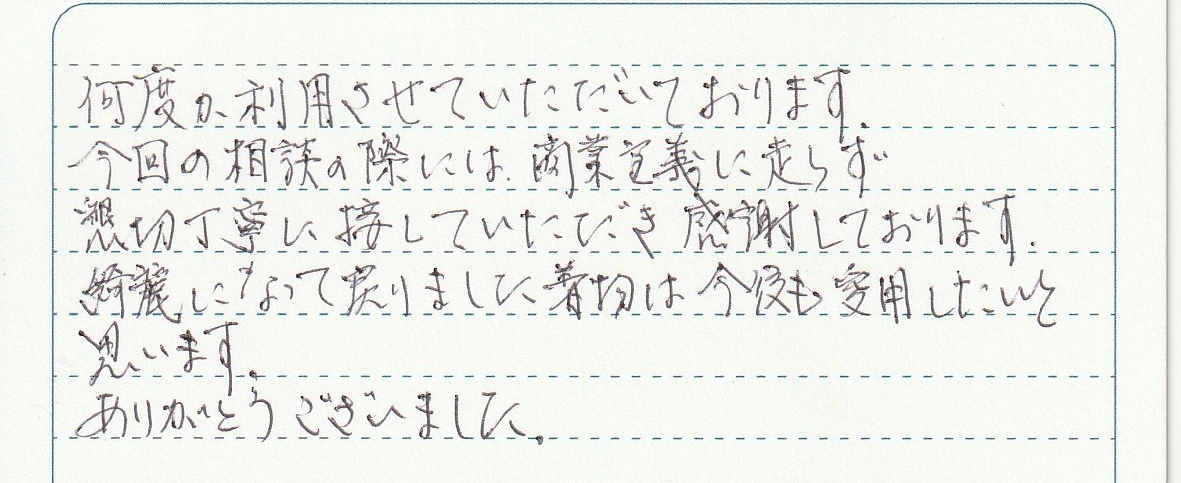 何度か利用させていただいております。
今回の相談の際には、商業主義に走らず
懇切丁寧に接していただき感謝しております。
綺麗になって戻りました着物は今後も愛用したいと
思います。
ありがとうございました。